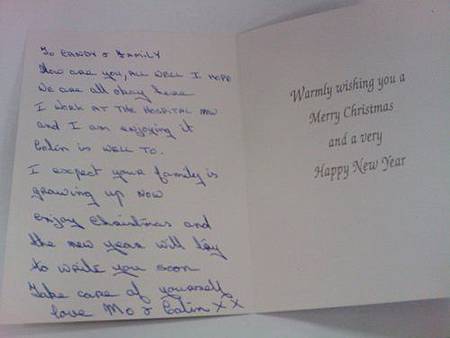 To CANDY & FAMILY
How are you, ALL WELL I HOPE
We are all okay here
I WORK AT THE HOSPITAL NOW
and I am enjoying it
Colin is WELL TO.
I expect your family is
growing up now
enjoy Christmas and
the new year will try
to write you soon
Take care of yourself
love Mo & Colin X X
Warmly wishing you a
Merry Christmas
and a very
Happy New Year